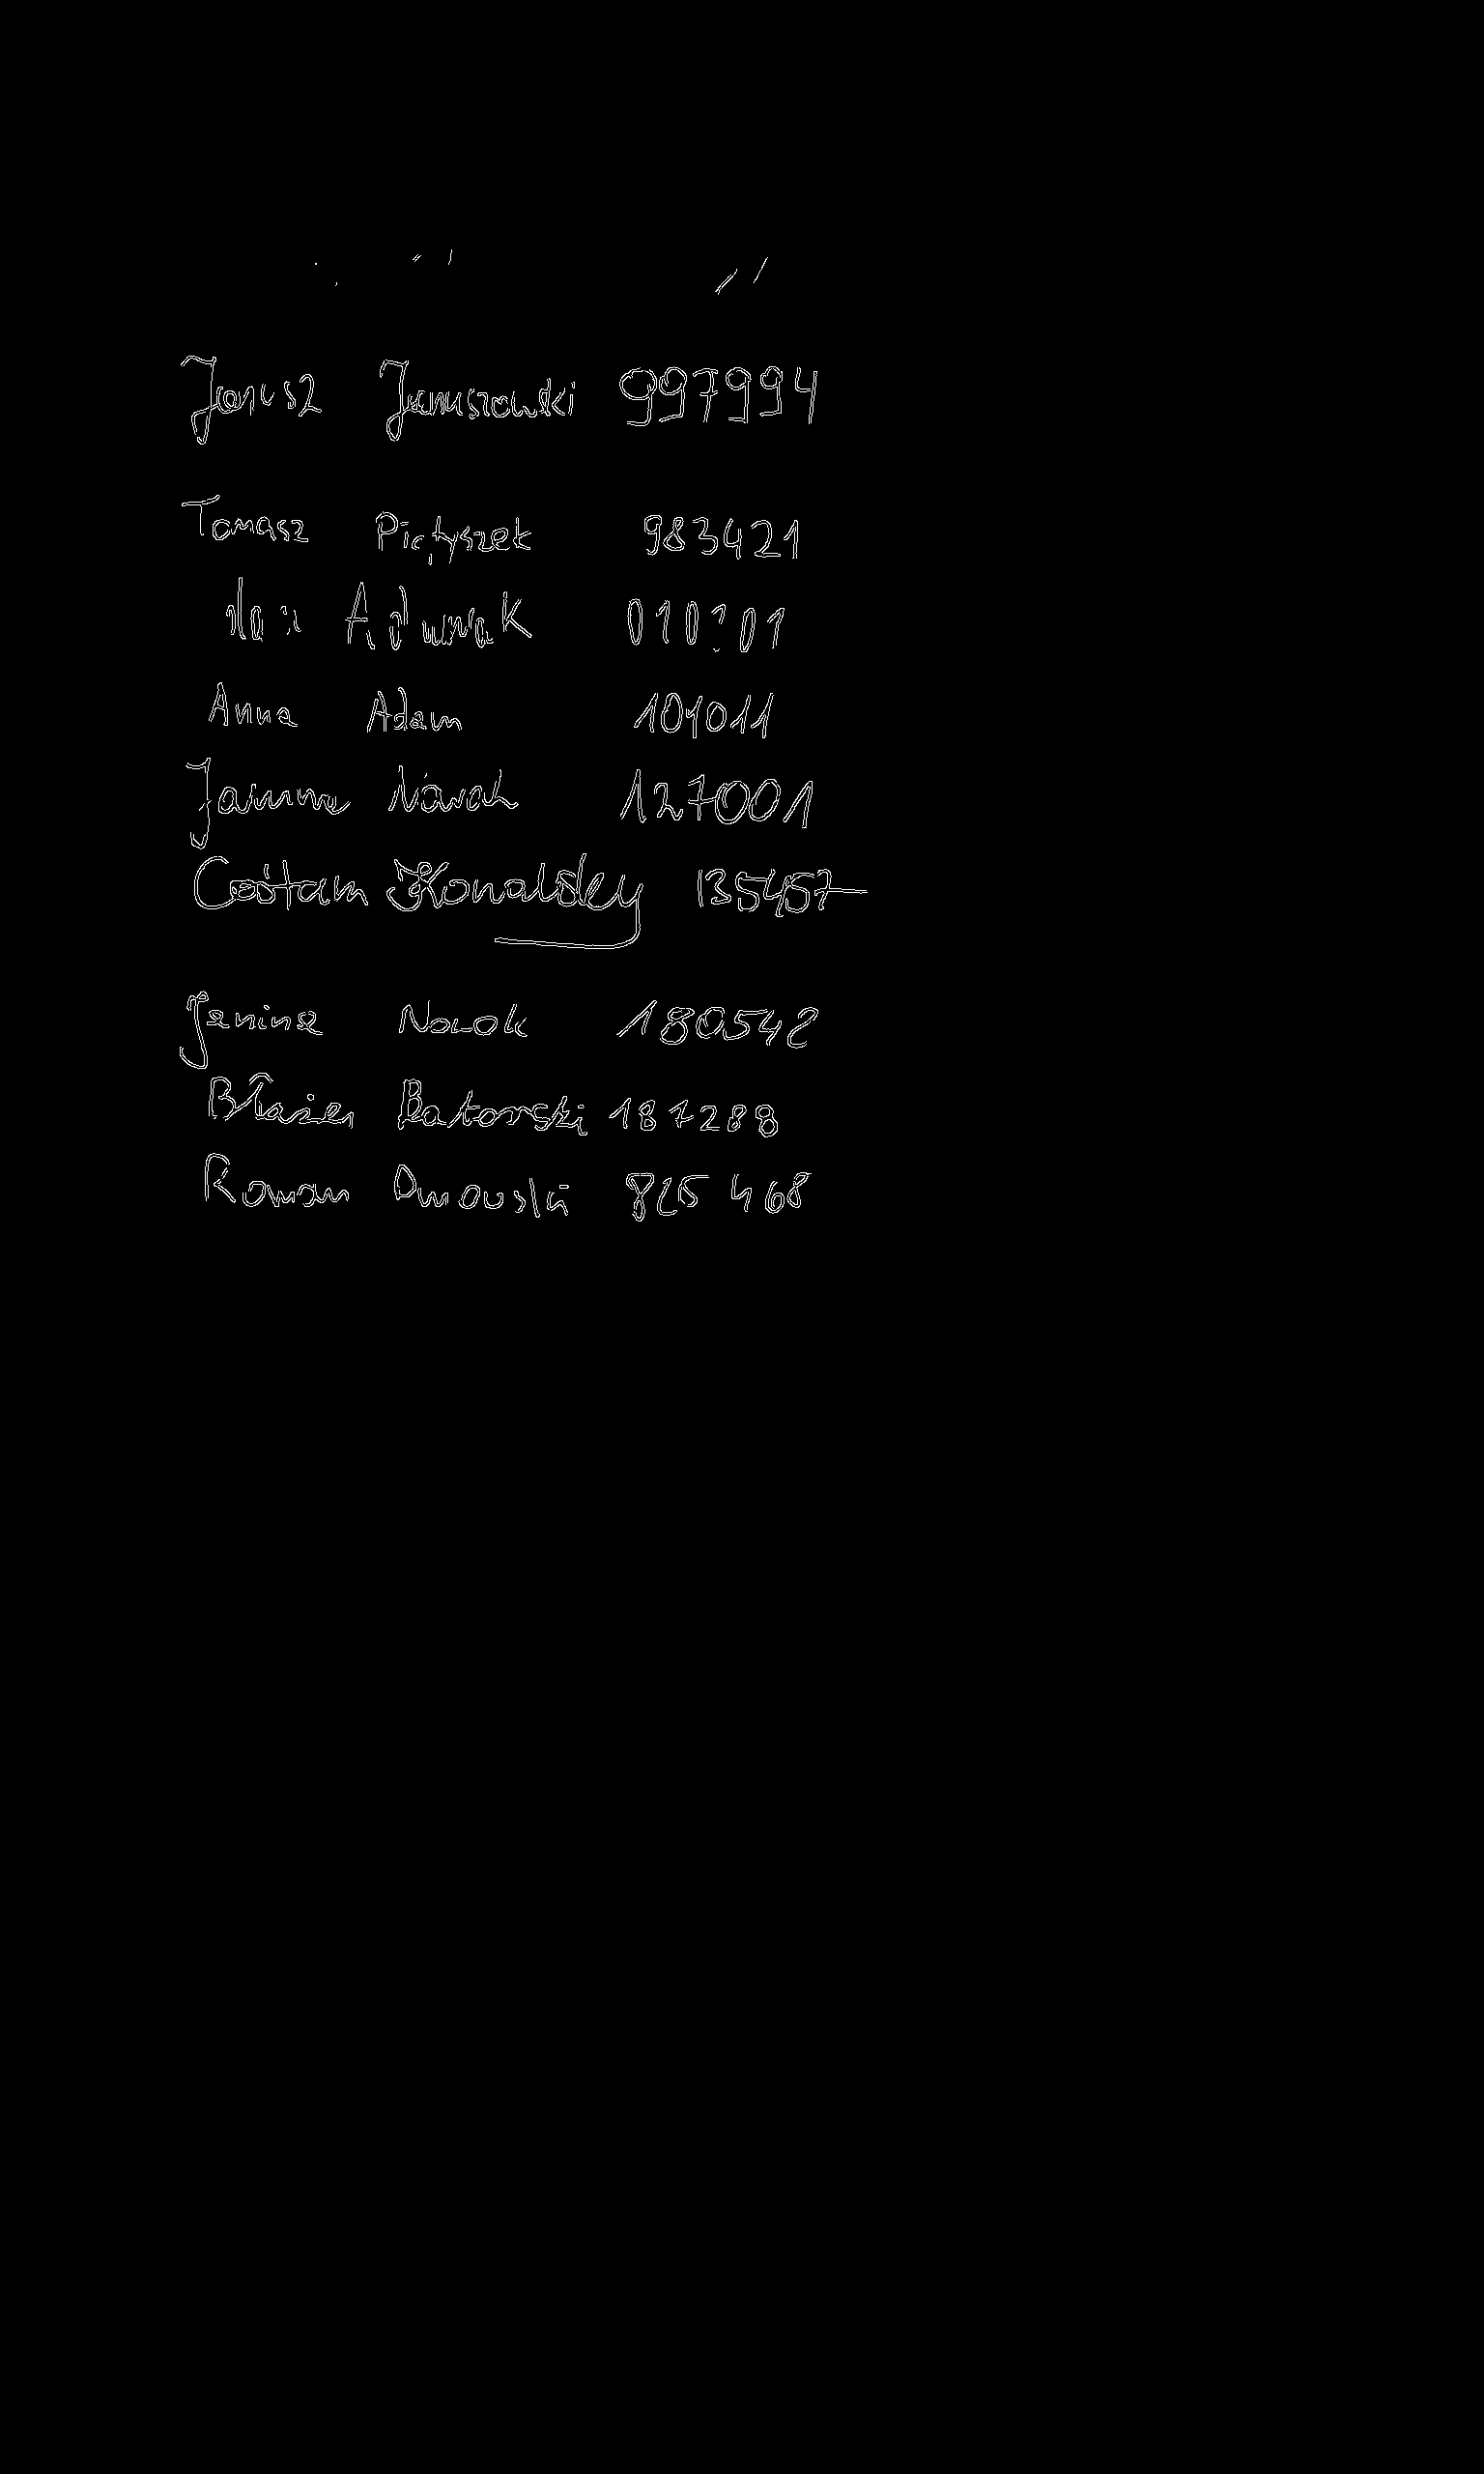 Janusz Januszowski 997994
Tomasz Piętyszek 983421
010?01
Anna Adam 101011
Janina Nowak 127001
Cośtam Kowalsky 135457
Janina Nowak 180542
Błażej Batorski 187288
Roman Dmowski 825 468